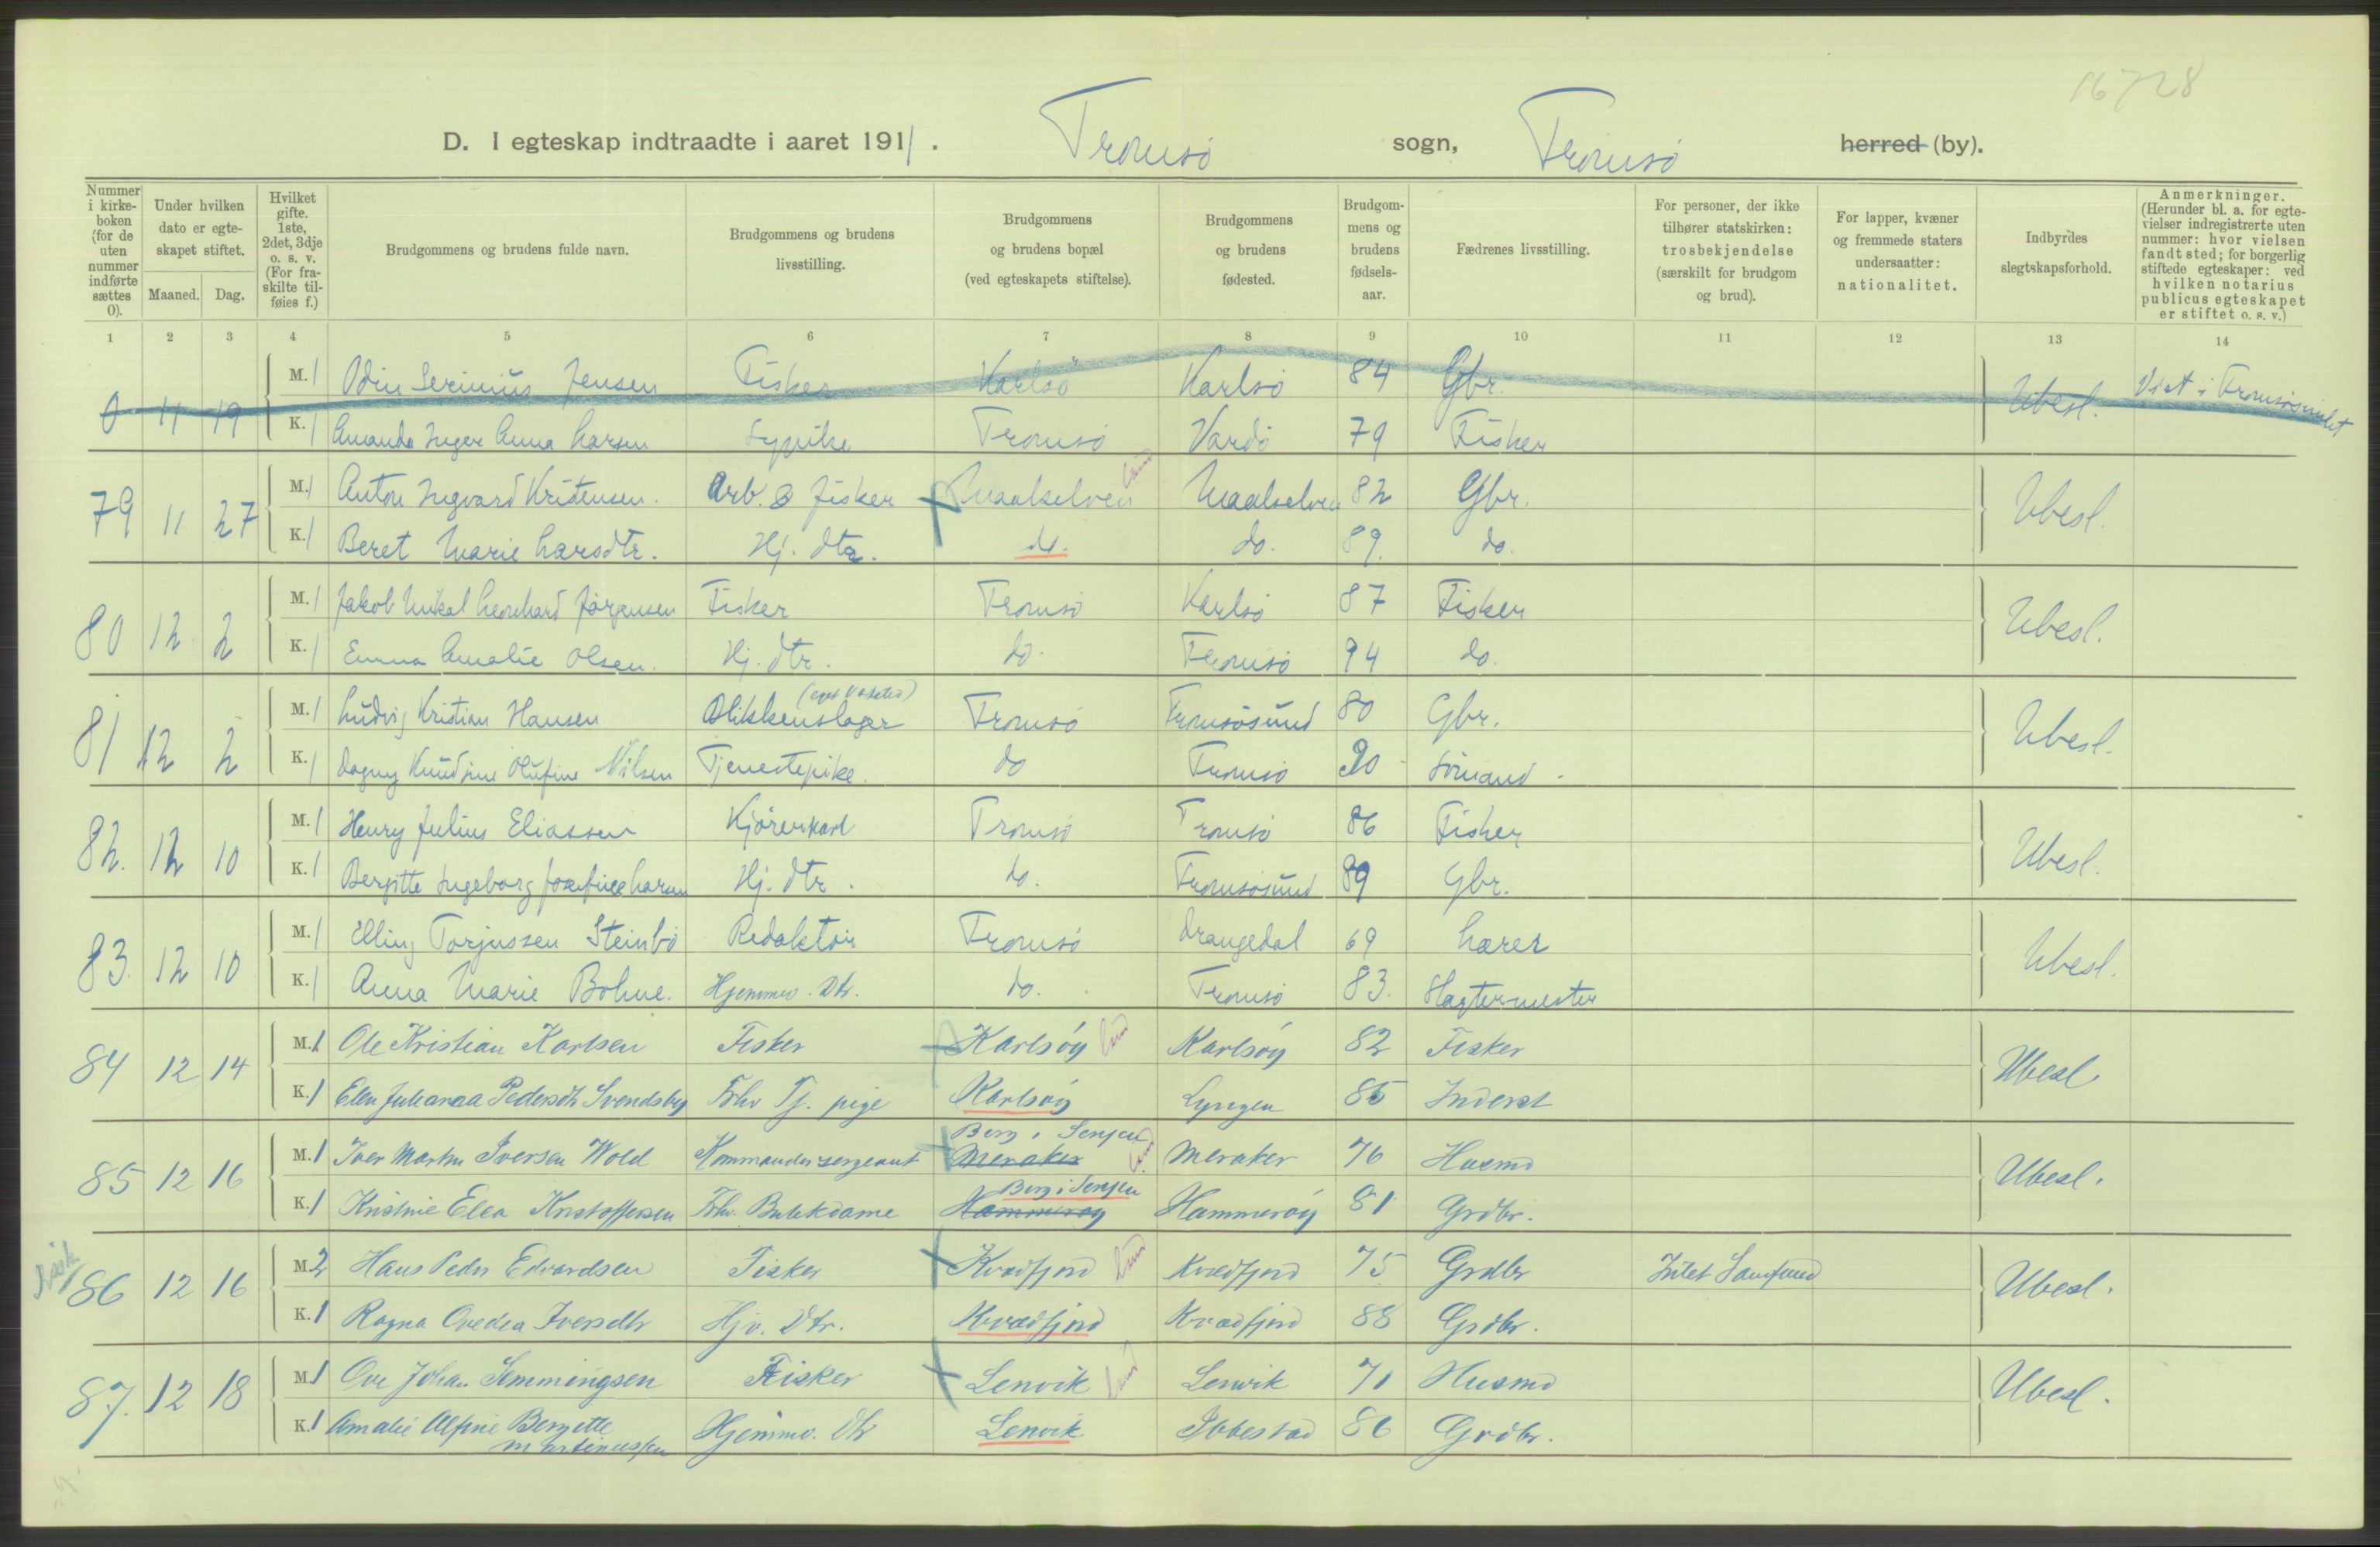 16728
D. I egteskap indtraadte i aaret 1911. Tromsö sogn, Tromsö herred (by).
Nummer i kirke-boken (for de uten nummer indførte sættes 0). | Under hvilken dato er egte-skapet stiftet. Maaned. Dag. | Hvilket gifte. 1ste, 2det, 3dje o. s. v. (For fra-skilte til-føies f.) | Brudgommens og brudens fulde navn. | Brudgommens og brudens livsstilling. | Brudgommens og brudens bopæl (ved egteskapets stiftelse). | Brudgommens og brudens fødested. | Brudgom-mens og brudens fødsels-aar. | Fædrenes livsstilling. | For personer, der ikke tilhører statskirken: trosbekjendelse (særskilt for brudgom og brud). | For lapper, kvæner og fremmede staters undersaatter: nationalitet. | Indbyrdes slegtskapsforhold. | Anmerkninger. (Herunder bl. a. for egte-vielser indregistrerte uten nummer: hvor vielsen fandt sted; for borgerlig stiftede egteskaper: ved hvilken notarius publicus egteskapet er stiftet o. s. v.)
1 2 3 4 5 6 7 8 9 10 11 12 13 14
0 11 19 M. 1 Odin Serinius Jensen Fisker Karlsö Karlsö 84 Gbr. Ubesl. Viet i Tromsösundet
K. 1 Amanda Inger Anna Larsen Sypike Tromsö Vardö 79 Fisker
79 11 27 M. 1 Anton Ingvard Kristensen. Arb. & fisker Maalselven Maalselven 82 Gbr. Ubesl.
K. 1 Beret Marie Larsdtr. Hj. dtr. do. do. 89. do.
80 12 2 M. 1 Jakob Mikal Leonhard Jörgensen Fisker Tromsö Karlsö 87 Fisker Ubesl.
K. 1 Emma Amalie Olsen. Hj. dtr. do. Tromsö 94 do.
81 12 2 M. 1 Ludvig Kristian Hansen Blikkenslager Tromsö Tromsösund 80 Gbr. Ubesl.
K. 1 Dagny Knudine Olufine Nilsen Tjenestepike. do Tromsö 90 Sömand.
82. 12 10 M. 1 Henry Julius Eliassen Kjörerkarl Tromsö Tromsö 86 Fisker Ubesl.
K. 1 Bergitte Ingeborg Josefine Larsen Hj. dtr. do. Tromsösund 89 Gbr.
83. 12 10 M. 1 Elling Torjussen Steinbö Redaktör Tromsö Drangedal 69 Lærer Ubesl.
K. 1 Anna Marie Bohne. Hjemmev. Dtr. do. Tromsö 83. Slagtermester
84 12 14 M. 1 Ole Kristian Karlsen Fisker Karlsöy Karlsöy 82 Fisker Ubesl
K. 1 Elen Julianna Pedersdtr Svendsby Fhv Tj. pige Karlsöy Lyngen 85 Inderst
85 12 16 M. 1 Iver Martin Iversen Wold Kommandersergeant Meraker Berg i Senjen Meraker 76 Husmd Ubesl.
K. 1 Kristine Elea Kristoffersen Fhv. Butikdame Hammeröy Berg i Senjen Hammeröy 81 Grdbr.
86 12 16 M. 2 Hans Peder Edvardsen Fisker Kvædfjord Kvædfjord 75 Grdbr Intet Samfund Ubesl.
K. 1 Ragna Ovedia Iversdtr Hjv. Dtr. Kvædfjord Kvædfjord 88 Grdbr.
87. 12 18 M. 1 Ove Johan Semmingsen Fisker Lenvik Lenvik 71 Husmd Ubesl.
K. 1 Amalie Alfine Bergette Martinussen Hjemmev. Dtr Lenvik Ibbestad 86 Grdbr.